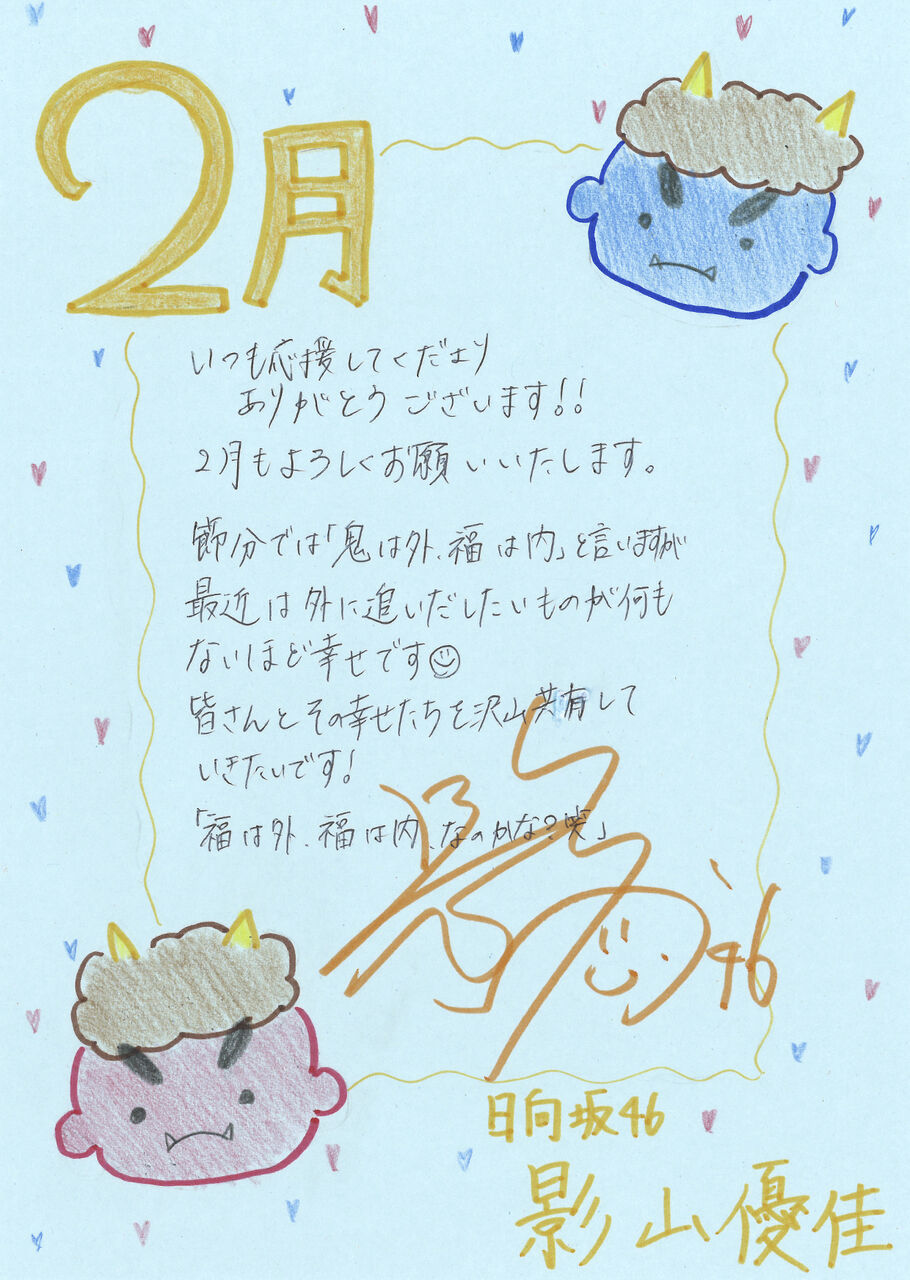 2月
いつも応援してくださり
ありがとうございます!!
2月もよろしくお願いいたします。
節分では「鬼は外、福は内」と言いますが
最近は外に追いだしたいものが何も
ないほど幸せです
皆さんとその幸せたちを沢山共有して
いきたいです!
「福は外、福は内、なのかな?笑」
46
日向坂46
影山優佳